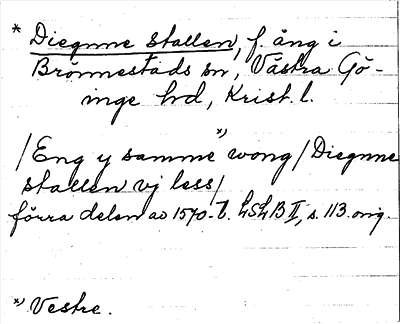 * Diegnne stallen, f. äng i
Brönnestads sn, Västra Gö-
inge hd, Krist. l.
/Eng y samme *) wong/Diegnne
stallen vj less/
förra delen av 1570-t. LSLB II, s. 113. orig.
*) Vestre.